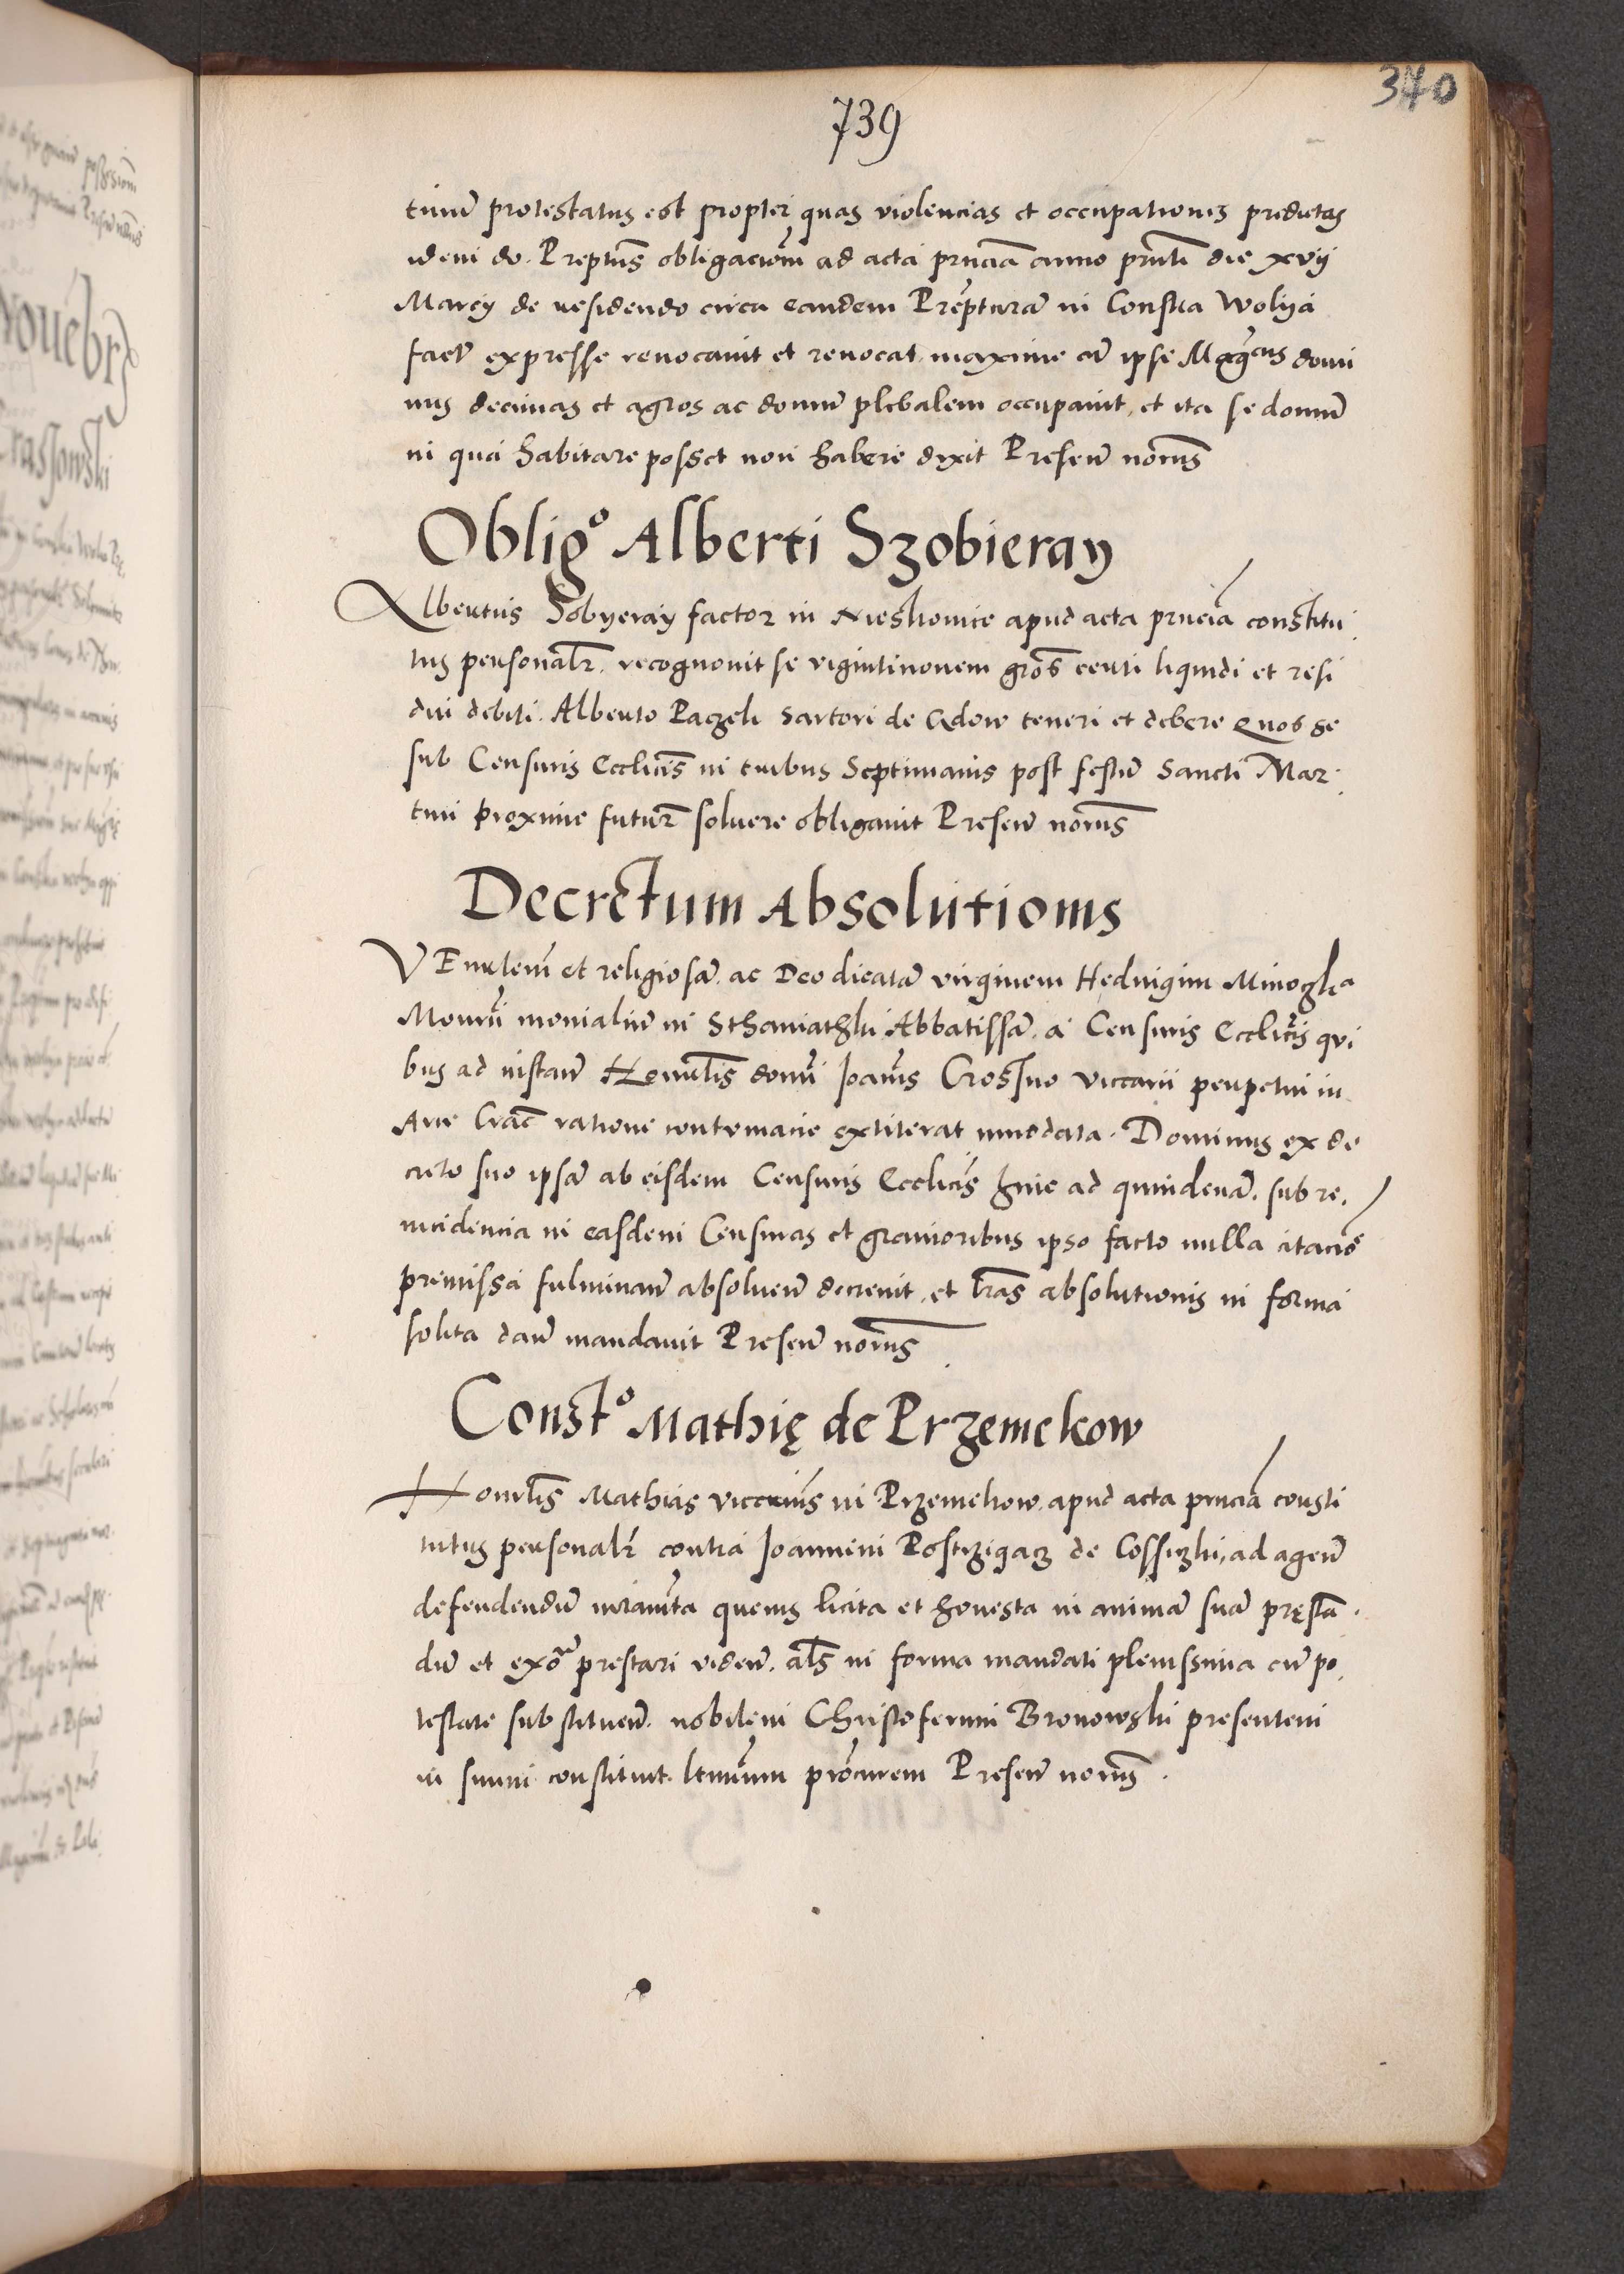 340
739
tinuū protestatus est propter quas violencias et occupationes predictas
idem do. Preptūs obligacionē ad acta prñcia anno prñti die xvij
Marcij de residendo circa eandem Prepturā in Conska Wolya
factā expresse reuocauit et reuocat maxime cū ipse Mag̃cus domi
nus decimas et agros ac domū plebalem occupauit, et ita se domū
in qua habitare posset non habere dixit Presen̄ notūs
Obligº Alberti Szobieray
Albertus Sobyeray factor in apud acta prñcia constitu
tus personalr̃. recognouit se vigintinouem gros certi liquidi et resi
dui debiti. Alberto Paczek sartori de Gdow teneri et debere Quos se
sub Censuris Ecclicis in tribus Septimanis post festū Sancti Mar
tini proxime futur̄ soluere obligauit Presen̄ notūs
Decretum Absolutionis
VEn̄tem et religiosā. ac Deo dicatā virginem Heduigim Minoczka
Mon̄rij monialiū in Sthaniathki Abbatissā. a Censuris Ecclicis qui
bus ad instan̄ Honorlis domi Joan̄is Crossno viccarii perpetui in
Arce Crac̄ ratione contumacie extiterat innodata. Dominus ex de
creto suo ipsā ab eisdem Censuris Ecclicis hinc ad quindenā. sub re
incidencia in easdem Censuras et grauioribus ipso facto nulla citacioē
premissa fulminan̄ absoluen̄ decreuit, et lr̄as absolutionis in forma
solita dan̄ mandauit Presen̄ notūs
Constº Mathię de Przemekow
Honorlis Mathias viccarius in Przemekow. apud acta prñcia consti
tutus personalr̃ contra Joannem de ad agen̄
defendendū iuramēta queuis licita et honesta in animā suā pręstā
dū et exoā prestari viden̄. als in forma mandati plenissima cū po
testate substituen̄. nobilem Christoferum Bronowski presentem
in suum constituit. ltm̄um procurem Presen̄ notūs.